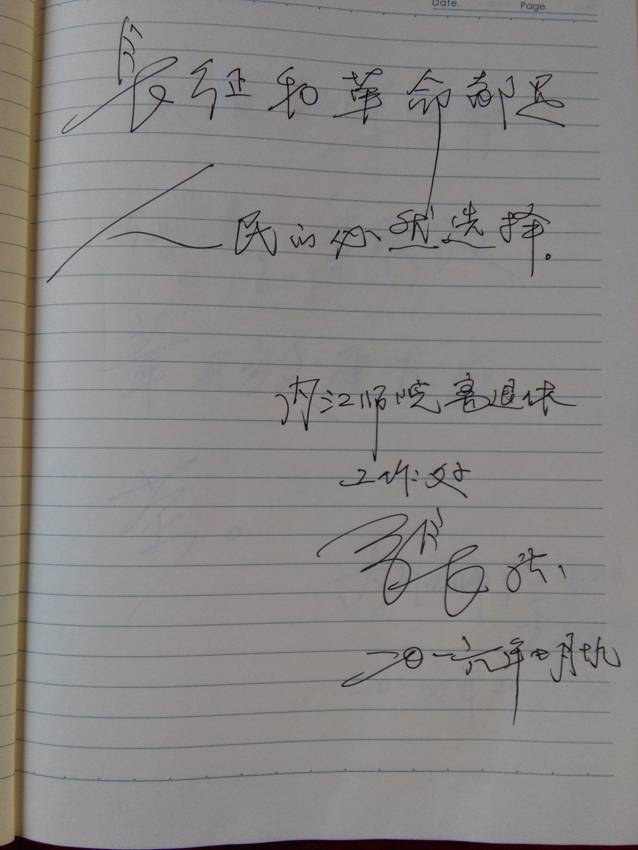 Date. Page.
长征和革命都是
人民的必然选择。
内江师院离退休
工作处
二〇一六年七月十九